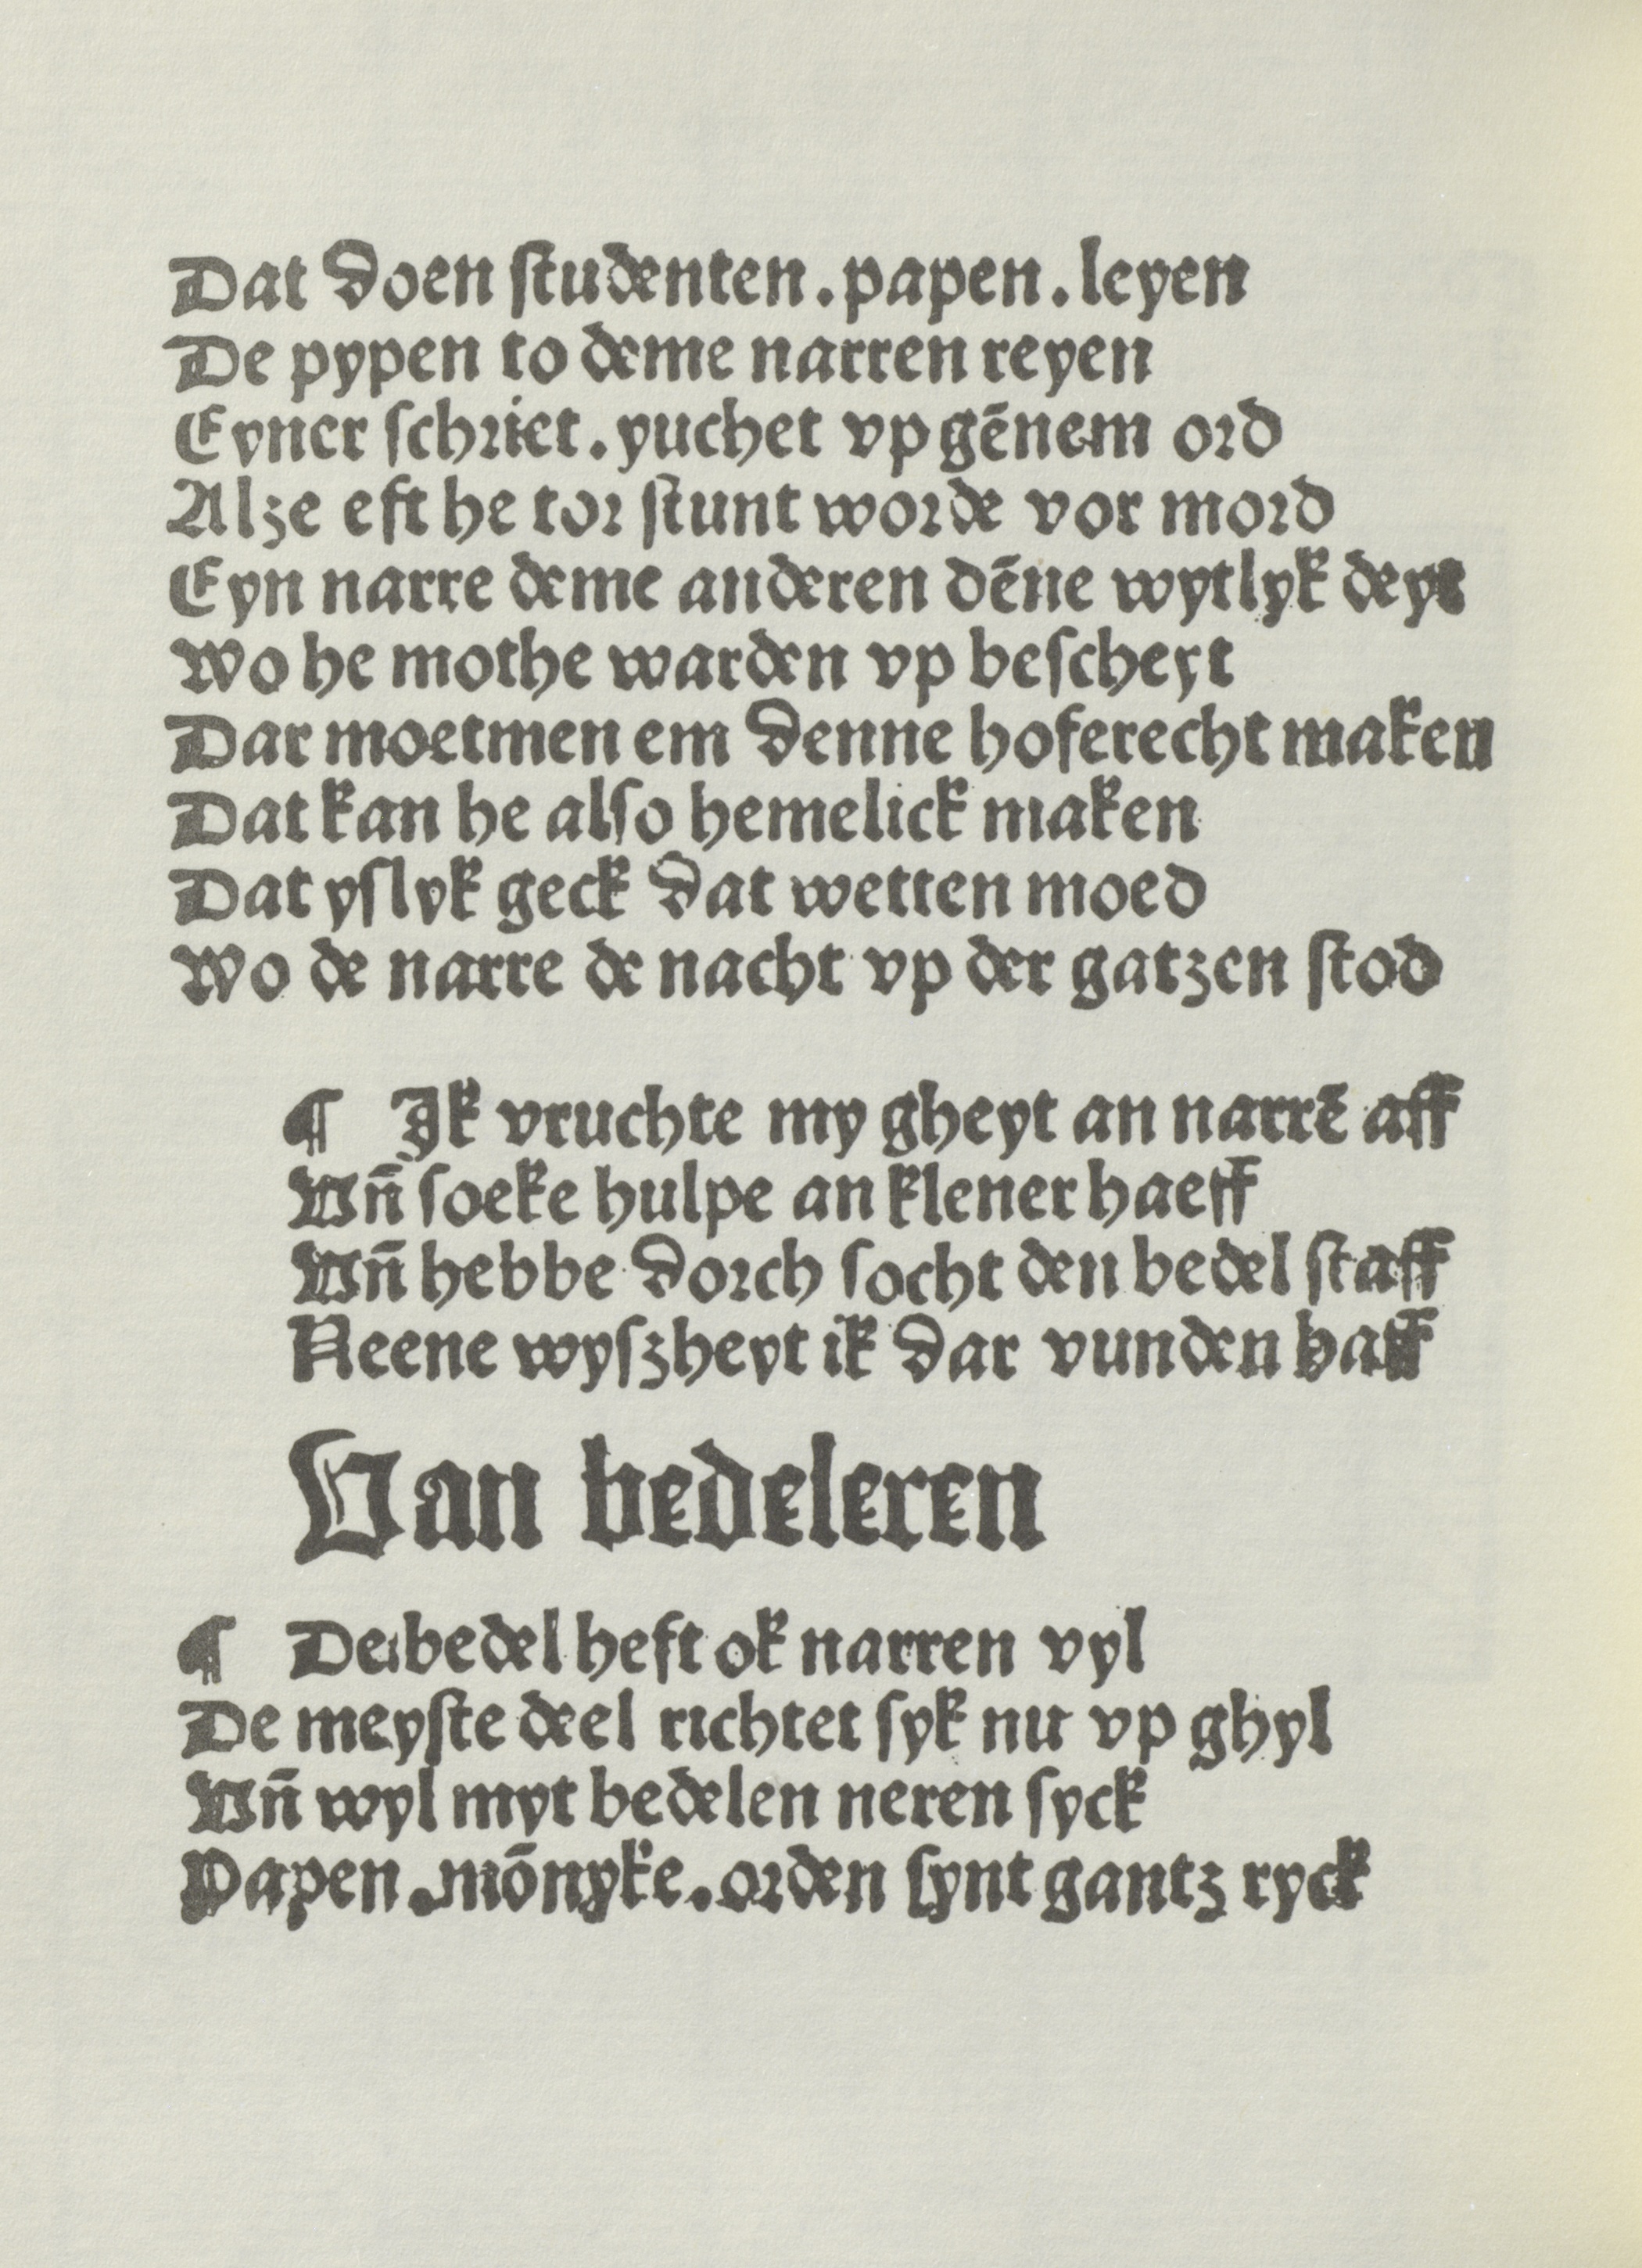 Dat doen ſtudenten . papen . leyen
De pypen to deme narren reyen
Eyner ſchriet . yuchet vp gēnem ord
Alze eft he tor ſtunt worde vor mord
Eyn narre deme anderen dēne wytlyk deyt
Wo he mothe warden vp beſcheyt
Dar moetmen em denne hoferecht maken
Dat kan he alſo hemelick maken
Dat yſlyk geck dat wetten moed
Wo de narre de nacht vp der gatzen ſtod
¶ Ik vruchte my gheyt an narrē aff
Vn̄ ſoeke hulpe an klener haeff
Vn̄ hebbe dorch ſocht den bedel ſtaff
Neene wyſzheyt ik dar vunden haff
Van bedeleren
¶ De bedel heft ok narren vyl
De meyſte deel richtet ſyk nu vp ghyl
Vn̄ wyl myt bedelen neren ſyck
Papen . mōnyke . orden ſynt gantz ryck